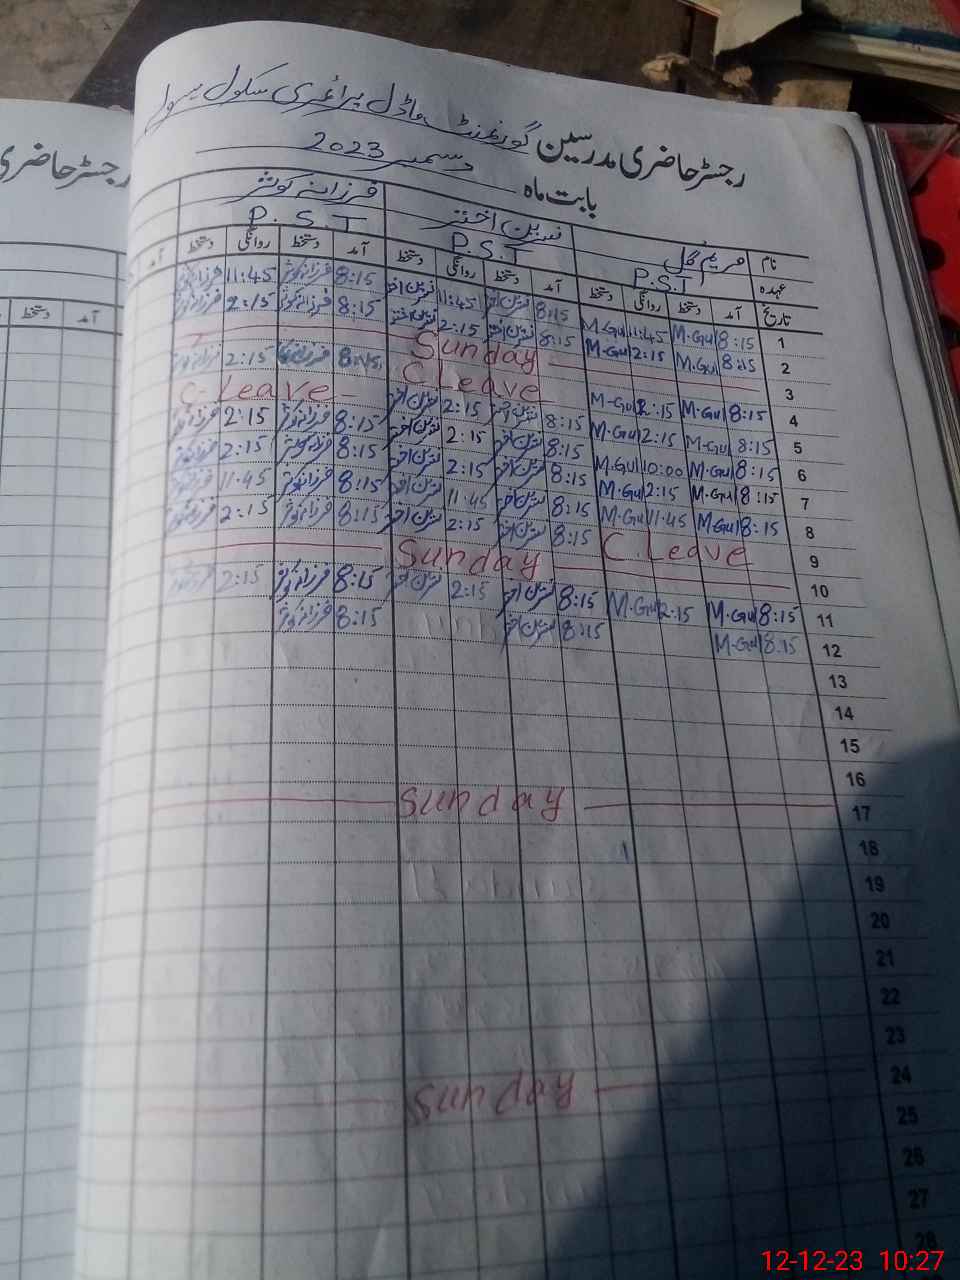 رجسٹر حاضری مدرسین گورنمنٹ ماڈل پرائمری سکول
بابت ماہ دسمبر 2023
نام مریم گل نسرین اختر فرزانہ کوثر
عہدہ P.S.T P.S.T P.S.T
تاریخ آمد دستخط روانگی دستخط آمد دستخط روانگی دستخط آمد دستخط روانگی دستخط آمد
1 8:15 M.Gul 11:45 M.Gul 8:15 نسرین اختر 11:45 نسرین اختر 8:15 فرزانہ کوثر 11:45 فرزانہ کوثر
2 8:15 M.Gul 2:15 M.Gul 8:15 نسرین اختر 2:15 نسرین اختر 8:15 فرزانہ کوثر 2:15 فرزانہ کوثر
3 Sunday
4 8:15 M.Gul 2:15 M-Gul C Leave 8:15 فرزانہ کوثر 2:15 فرزانہ کوثر
5 8:15 M.Gul 2:15 M.Gul 8:15 نسرین اختر 2:15 نسرین اختر C-Leave
6 8:15 M.Gul 10:00 M.Gul 8:15 نسرین اختر 2:15 نسرین اختر 8:15 فرزانہ کوثر 2:15 فرزانہ کوثر
7 8:15 M.Gul 2:15 M.Gul 8:15 نسرین اختر 2:15 نسرین اختر 8:15 فرزانہ کوثر 2:15 فرزانہ کوثر
8 8:15 M.Gul 11:45 M.Gul 8:15 نسرین اختر 11:45 نسرین اختر 8:15 فرزانہ کوثر 11:45 فرزانہ کوثر
9 C.Leave 8:15 نسرین اختر 2:15 نسرین اختر 8:15 فرزانہ کوثر 2:15 فرزانہ کوثر
10 Sunday
11 8:15 M.Gul 2:15 M.Gul 8:15 نسرین اختر 2:15 نسرین اختر 8:15 فرزانہ کوثر 2:15 فرزانہ کوثر
12 8:15 M.Gul 8:15 نسرین اختر 8:15 فرزانہ کوثر
13
14
15
16
17 Sunday
18
19
20
21
22
23
24 Sunday
25
26
27
28
رجسٹر حاضری
آمد دستخط
12-12-23 10:27